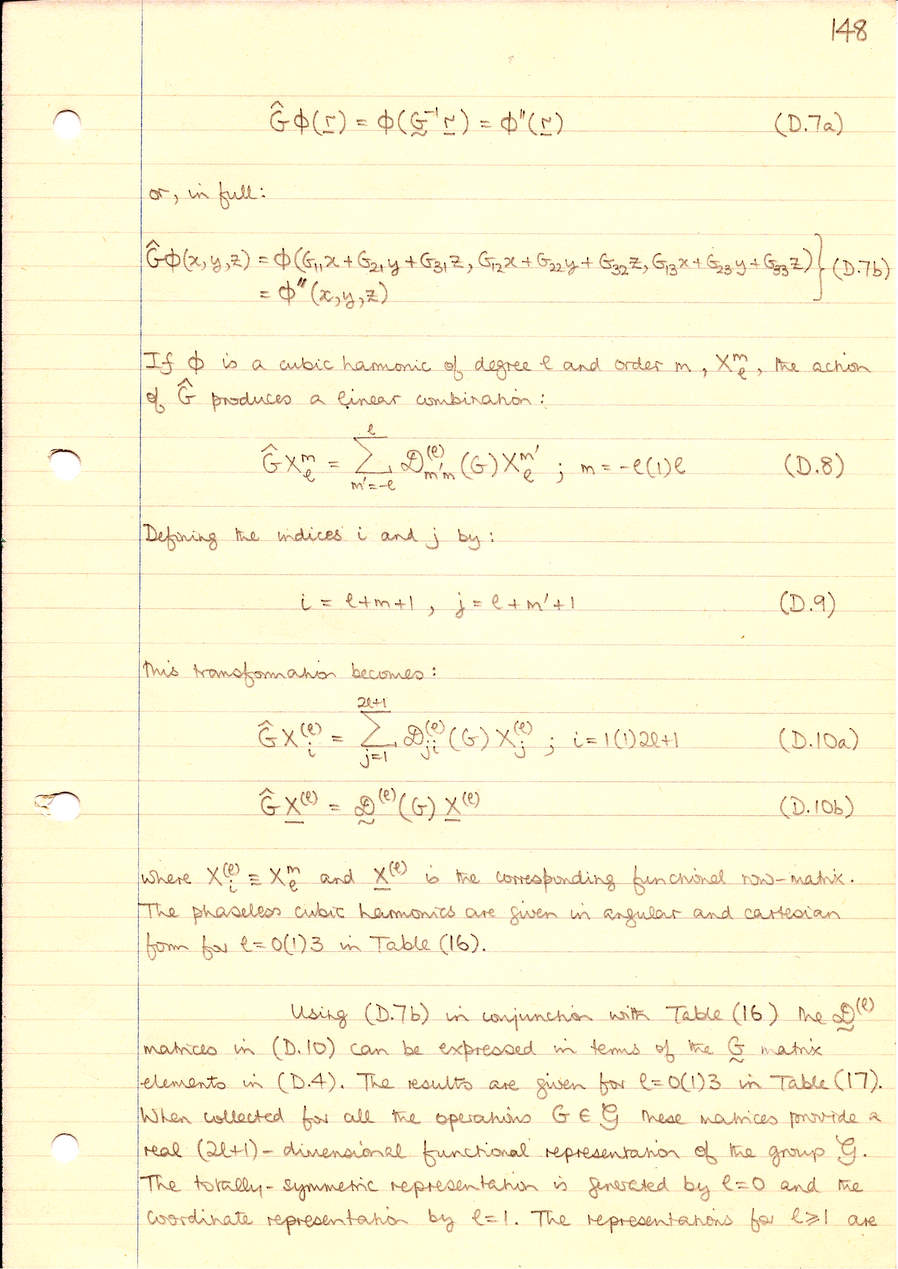 148
Ĝϕ(r) = ϕ(G⁻¹ r) = ϕ"(r) (D.7a)
or, in full:
Ĝϕ(x,y,z) = ϕ(G₁₁x+G₂₁y+G₃₁z, G₁₂x+G₂₂y+G₃₂z, G₁₃x+G₂₃y+G₃₃z) } (D.7b)
= ϕ"(x,y,z)
If ϕ is a cubic harmonic of degree ℓ and order m, X_ℓ^m, the action
of Ĝ produces a linear combination:
ĜX_ℓ^m = ∑_{m'=-ℓ}^{ℓ} 𝒟_{m'm}^{(ℓ)}(G) X_ℓ^{m'} ; m = -ℓ(1)ℓ (D.8)
Defining the indices i and j by:
i = ℓ+m+1 , j = ℓ+m'+1 (D.9)
this transformation becomes:
ĜX_i^{(ℓ)} = ∑_{j=1}^{2ℓ+1} 𝒟_{ji}^{(ℓ)}(G) X_j^{(ℓ)} ; i = 1(1)2ℓ+1 (D.10a)
ĜX^{(ℓ)} = 𝒟^{(ℓ)}(G) X^{(ℓ)} (D.10b)
where X_i^{(ℓ)} ≡ X_ℓ^m and X^{(ℓ)} is the corresponding functional row-matrix.
The phaseless cubic harmonics are given in angular and cartesian
form for ℓ=0(1)3 in Table (16).
Using (D.7b) in conjunction with Table (16) the 𝒟^{(ℓ)}
matrices in (D.10) can be expressed in terms of the G matrix
elements in (D.4). The results are given for ℓ=0(1)3 in Table (17).
When collected for all the operations G ∈ 𝒢 these matrices provide a
real (2ℓ+1)-dimensional functional representation of the group 𝒢.
The totally-symmetric representation is generated by ℓ=0 and the
coordinate representation by ℓ=1. The representations for ℓ⩾1 are